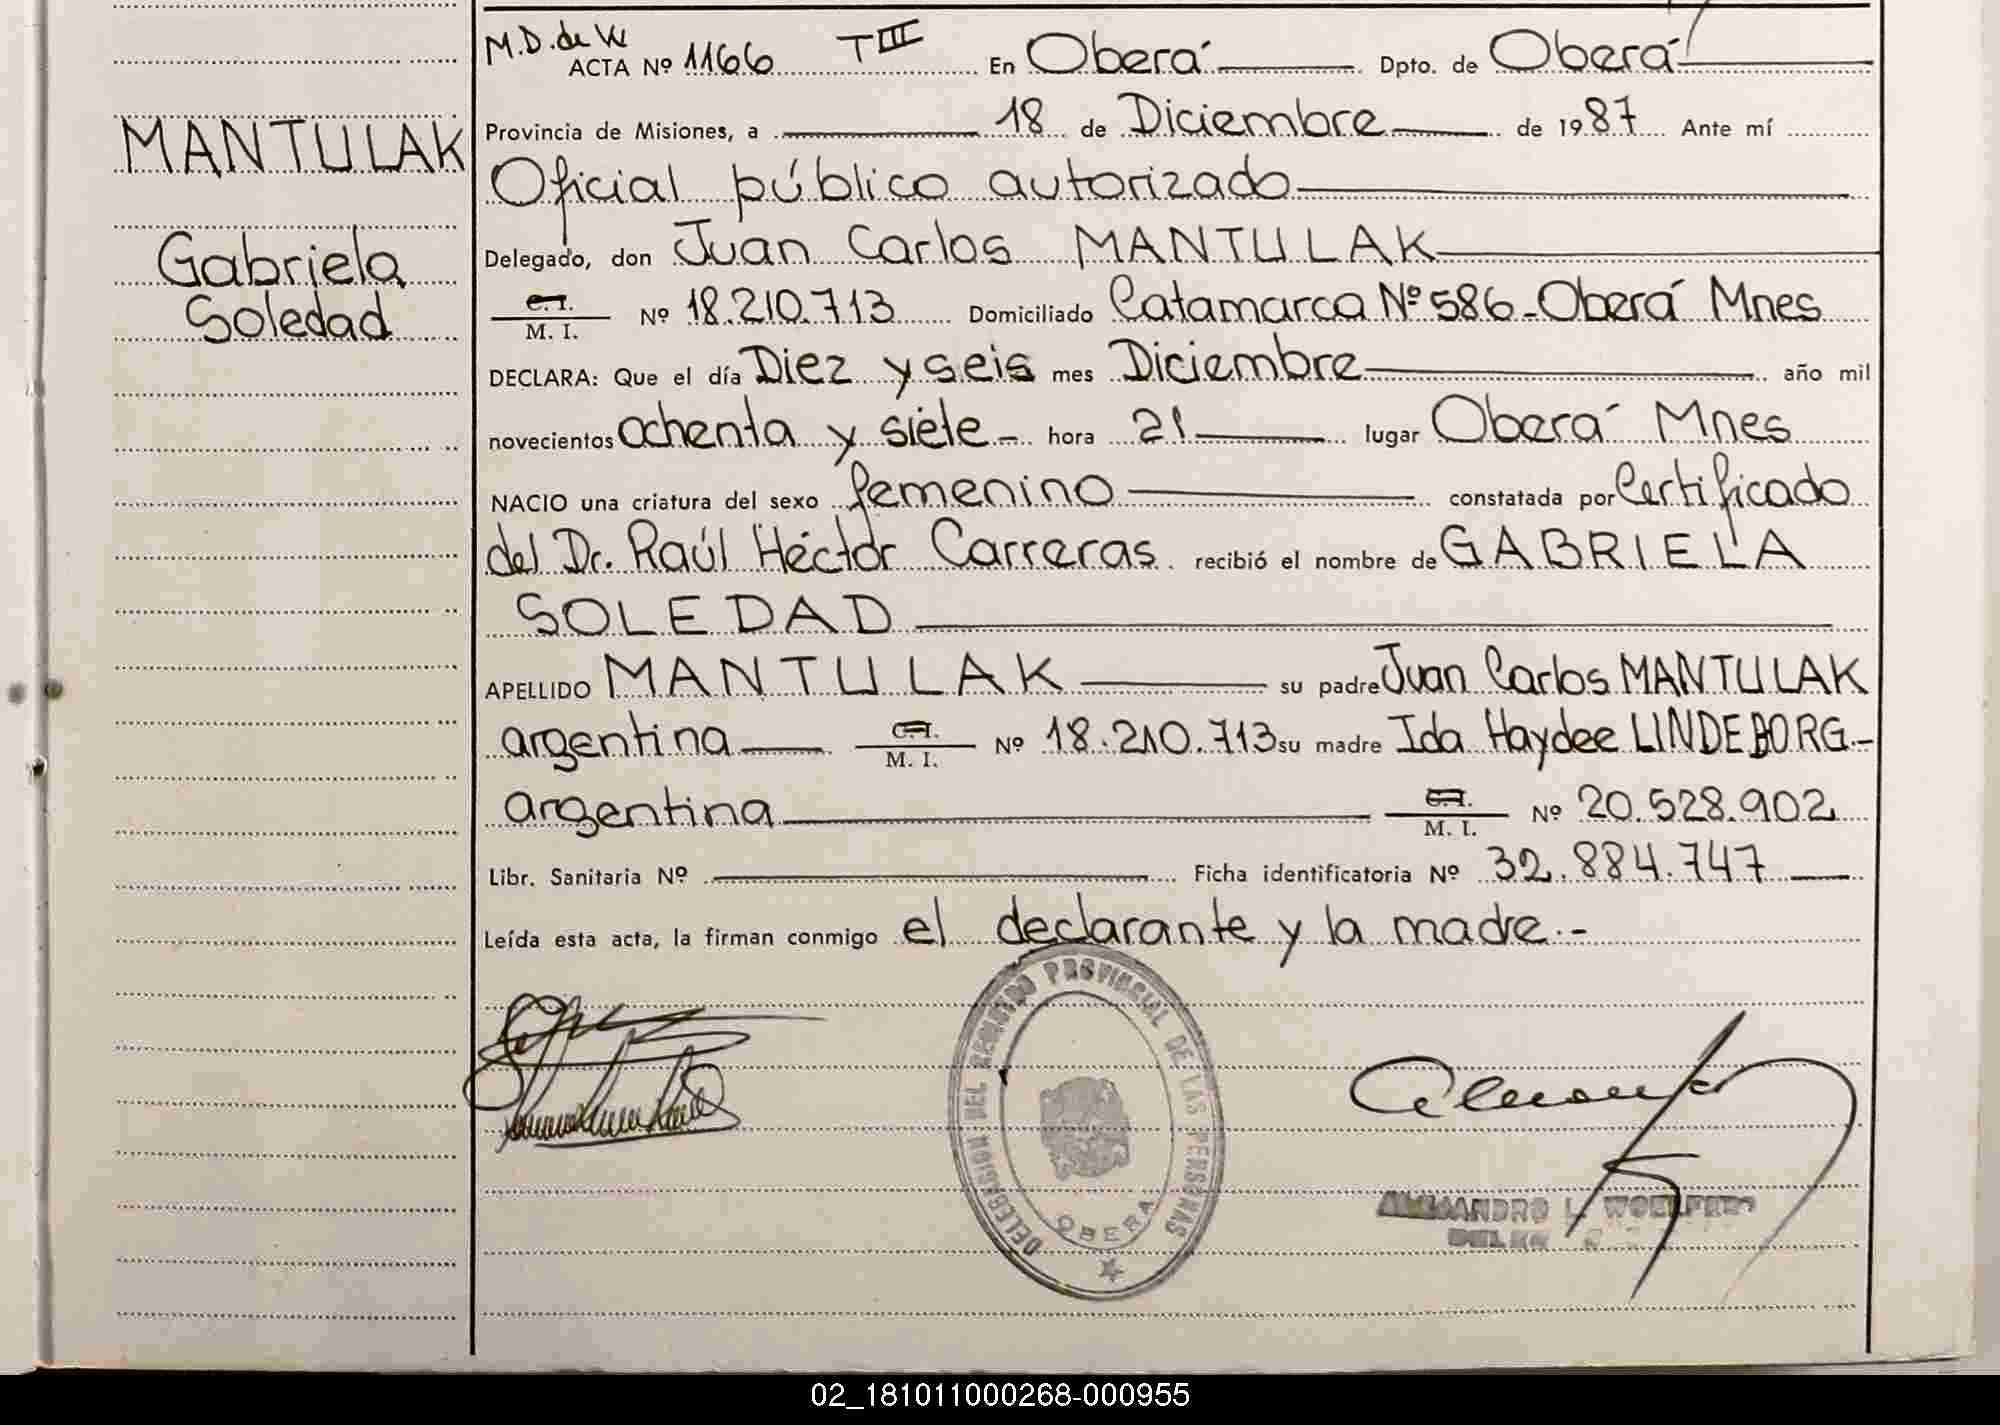 M.D. de W
ACTA Nº 1166 T III En Oberá Dpto. de Oberá
MANTULAK
Provincia de Misiones, a 18 de Diciembre de 1987 Ante mí
Oficial público autorizado
Gabriela
Soledad
Delegado, don Juan Carlos MANTULAK
C.I.
M. I. Nº 18.210.713 Domiciliado Catamarca Nº 586-Oberá Mnes
DECLARA: Que el día Diez y seis mes Diciembre año mil
novecientos ochenta y siete - hora 21 lugar Oberá Mnes
NACIO una criatura del sexo femenino constatada por Certificado
del Dr. Raúl Héctor Carreras recibió el nombre de GABRIELA
SOLEDAD
APELLIDO MANTULAK su padre Juan Carlos MANTULAK
argentina C.I. M. I. Nº 18.210.713 su madre Ida Haydee LINDEBORG.-
argentina C.I. M. I. Nº 20.528.902
Libr. Sanitaria Nº Ficha identificatoria Nº 32.884.747
Leída esta acta, la firman conmigo el declarante y la madre.-
DELEGACION DEL REGISTRO PROVINCIAL DE LAS PERSONAS
OBERA
02_181011000268-000955